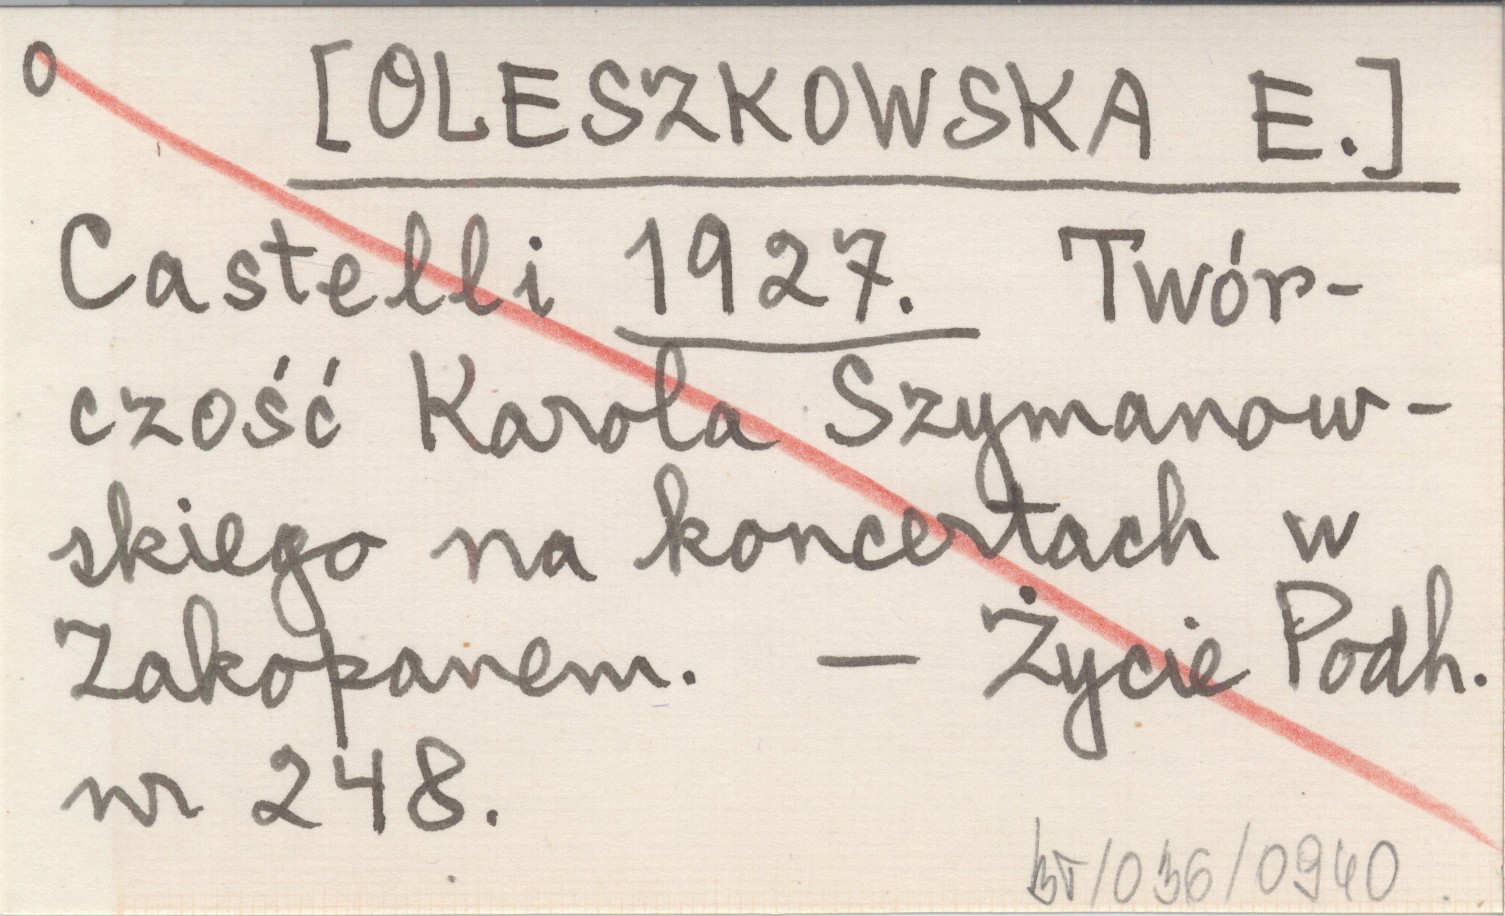 O [OLESZKOWSKA E.]
Castelli 1927. Twór-
czość Karola Szymanow-
skiego na koncertach w
Zakopanem. — Życie Podh.
nr 248.
/036/0940